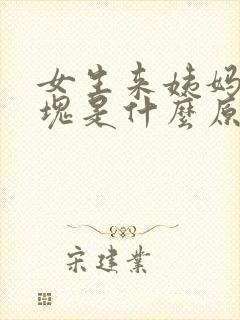 女生来姨妈
块是什麼原
宋建業